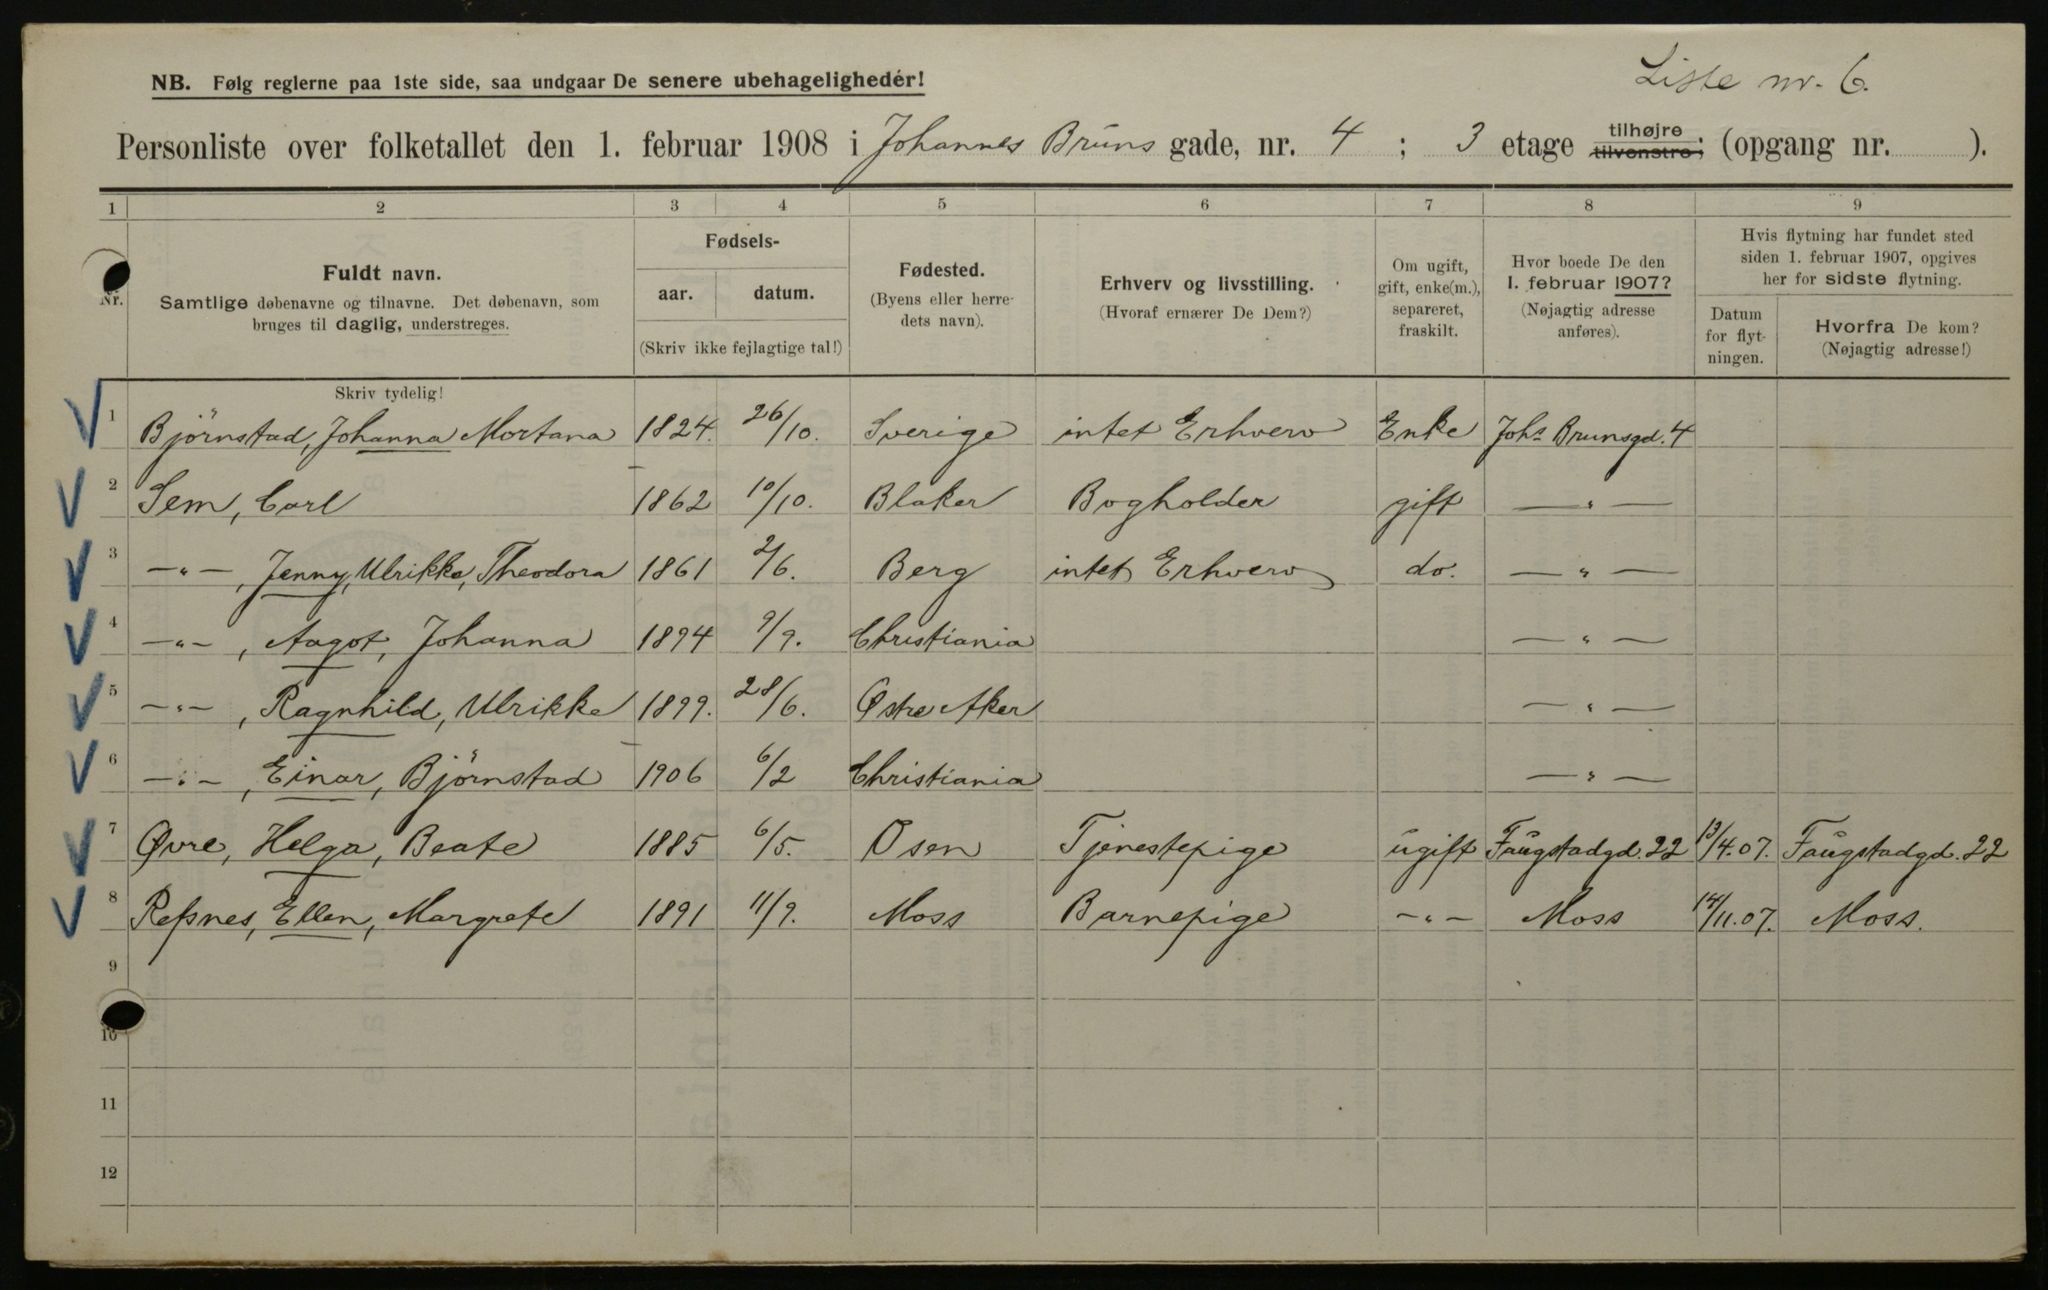 Liste nr. 6.
NB. Følg reglerne paa 1ste side, saa undgaar De senere ubehageligheder!
Personliste over folketallet den 1. februar 1908 i Johannes Bruns gade, nr. 4 ; 3 etage tilhøjre tilvenstre; (opgang nr. ).
1 2 3 4 5 6 7 8 9
Nr.
Fuldt navn.
Samtlige døbenavne og tilnavne. Det døbenavn, som
bruges til daglig, understreges.
Fødsels-
aar. datum.
(Skriv ikke fejlagtige tal!)
Fødested.
(Byens eller herre-
dets navn).
Erhverv og livsstilling.
(Hvoraf ernærer De Dem?)
Om ugift,
gift, enke(m.),
separeret,
fraskilt.
Hvor boede De den
1. februar 1907?
(Nøjagtig adresse
anføres).
Hvis flytning har fundet sted
siden 1. februar 1907, opgives
her for sidste flytning.
Datum
for flyt-
ningen.
Hvorfra De kom?
(Nøjagtig adresse!)
Skriv tydelig!
1 Björnstad, Johanna Mortana 1824. 26/10. Sverige intet Erhverv Enke Johs Brunsgd. 4
2 Sem, Carl 1862 10/10. Blaker Bogholder gift — " —
3 — " —, Jenny, Ulrikke, Theodora 1861 2/6. Berg intet Erhverv do. — " —
4 — " —, Aagot, Johanna 1894 9/9. Christiania — " —
5 — " —, Ragnhild, Ulrikke 1899. 28/6. Østre Aker — " —
6 — " —, Einar, Björnstad 1906 6/2 Christiania — " —
7 Øvre, Helga, Beate 1885 6/5. Osen Tjenestepige ugift Faugstadgd. 22 13/4.07. Faugstadgd. 22
8 Refsnes, Ellen, Margrete 1891 11/9. Moss Barnepige — " — Moss 14/11.07. Moss.
9
10
11
12